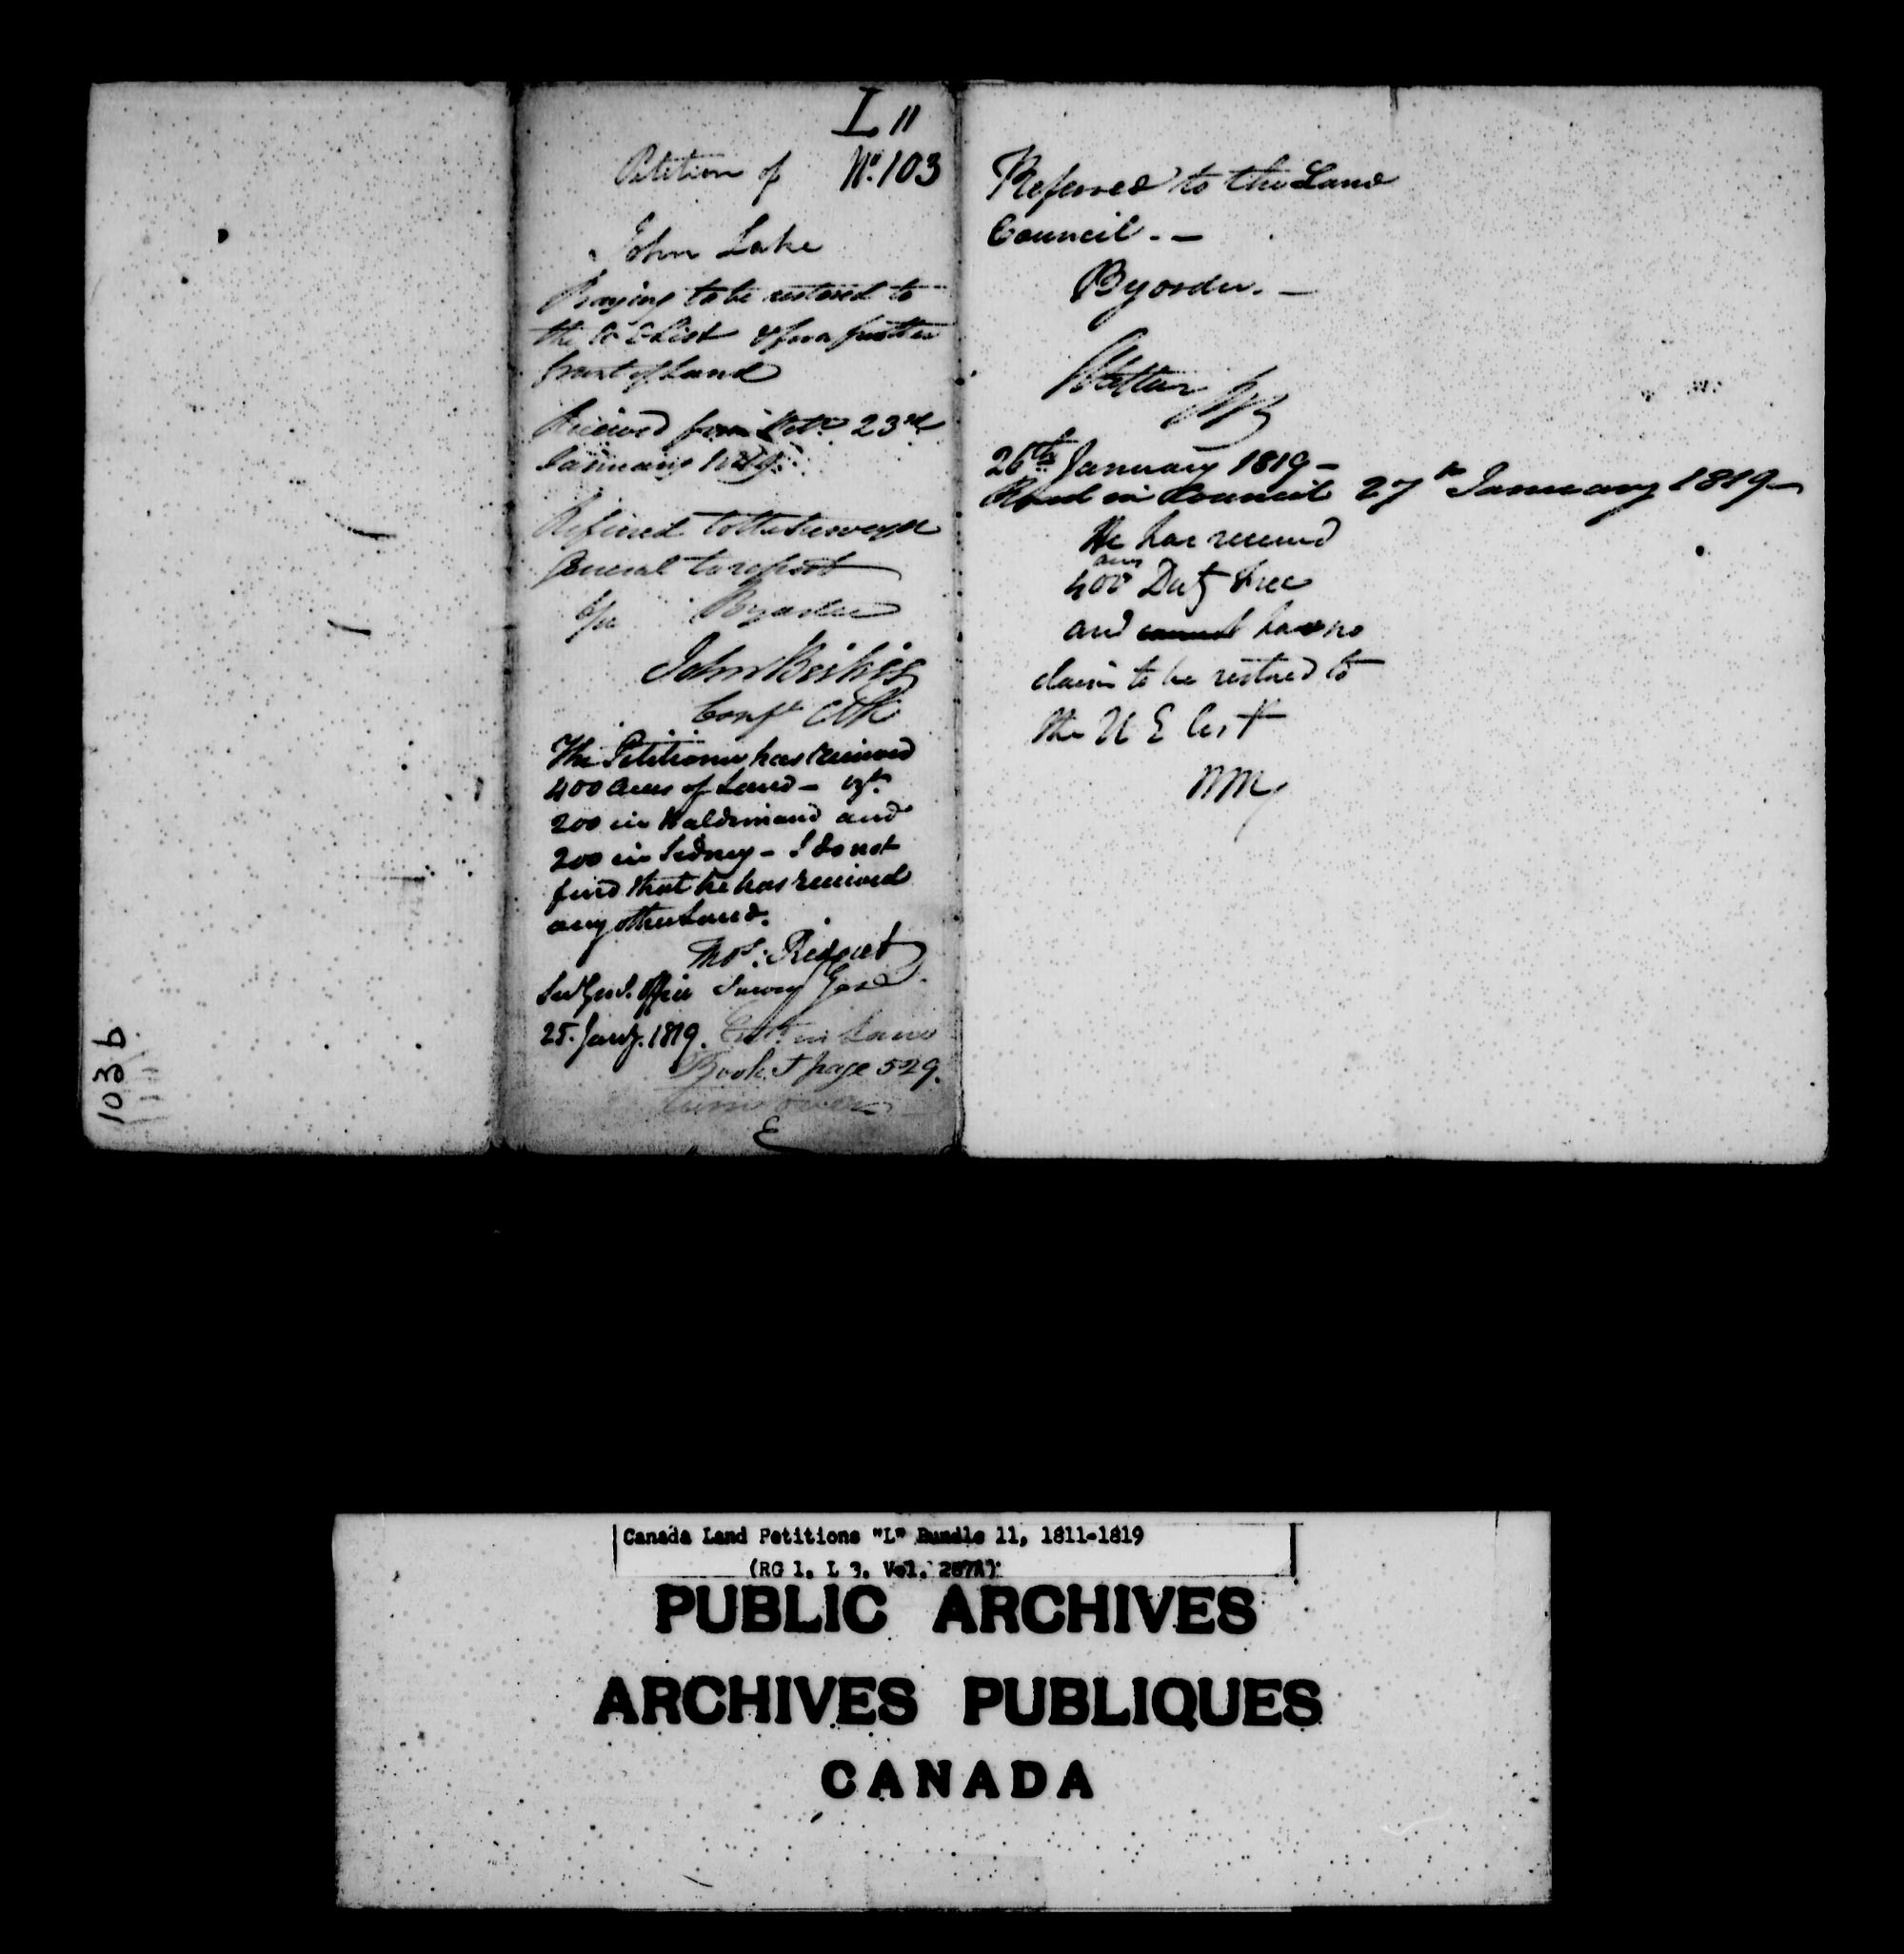 L 11
Petition of No. 103
John Lake
Praying to be restored to
the U E List & for a further
Grant of Land
Received from 23rd
January 1819.
Referred to the Surveyor
General to report
By order
John Beikie
Confl Clk
The Petitioner has received
400 acres of Land - vzt
200 in Haldimand and
200 in Sidney - I do not
find that he has received
any other Land.
Thos. Ridout
Survr Genl. Office Survey Genl.
25. Jany. 1819. Entd. in Land
Book J page 529.
turn over
Referred to the Land
Council. -
By order. -
26th January 1819 -
Read in Council 27th January 1819 -
He has received
400 acres Duty free
and cannot has no
claim to be restored to
the U E List
103 b
Canada Land Petitions "L" Bundle 11, 1811-1819
(RG 1, L 3, Vol. 287A)
PUBLIC ARCHIVES
ARCHIVES PUBLIQUES
CANADA